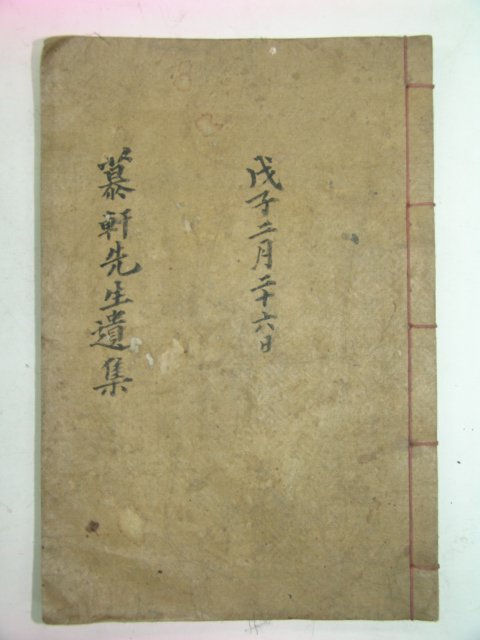 戊子二月二十六日
慕軒先生遺集